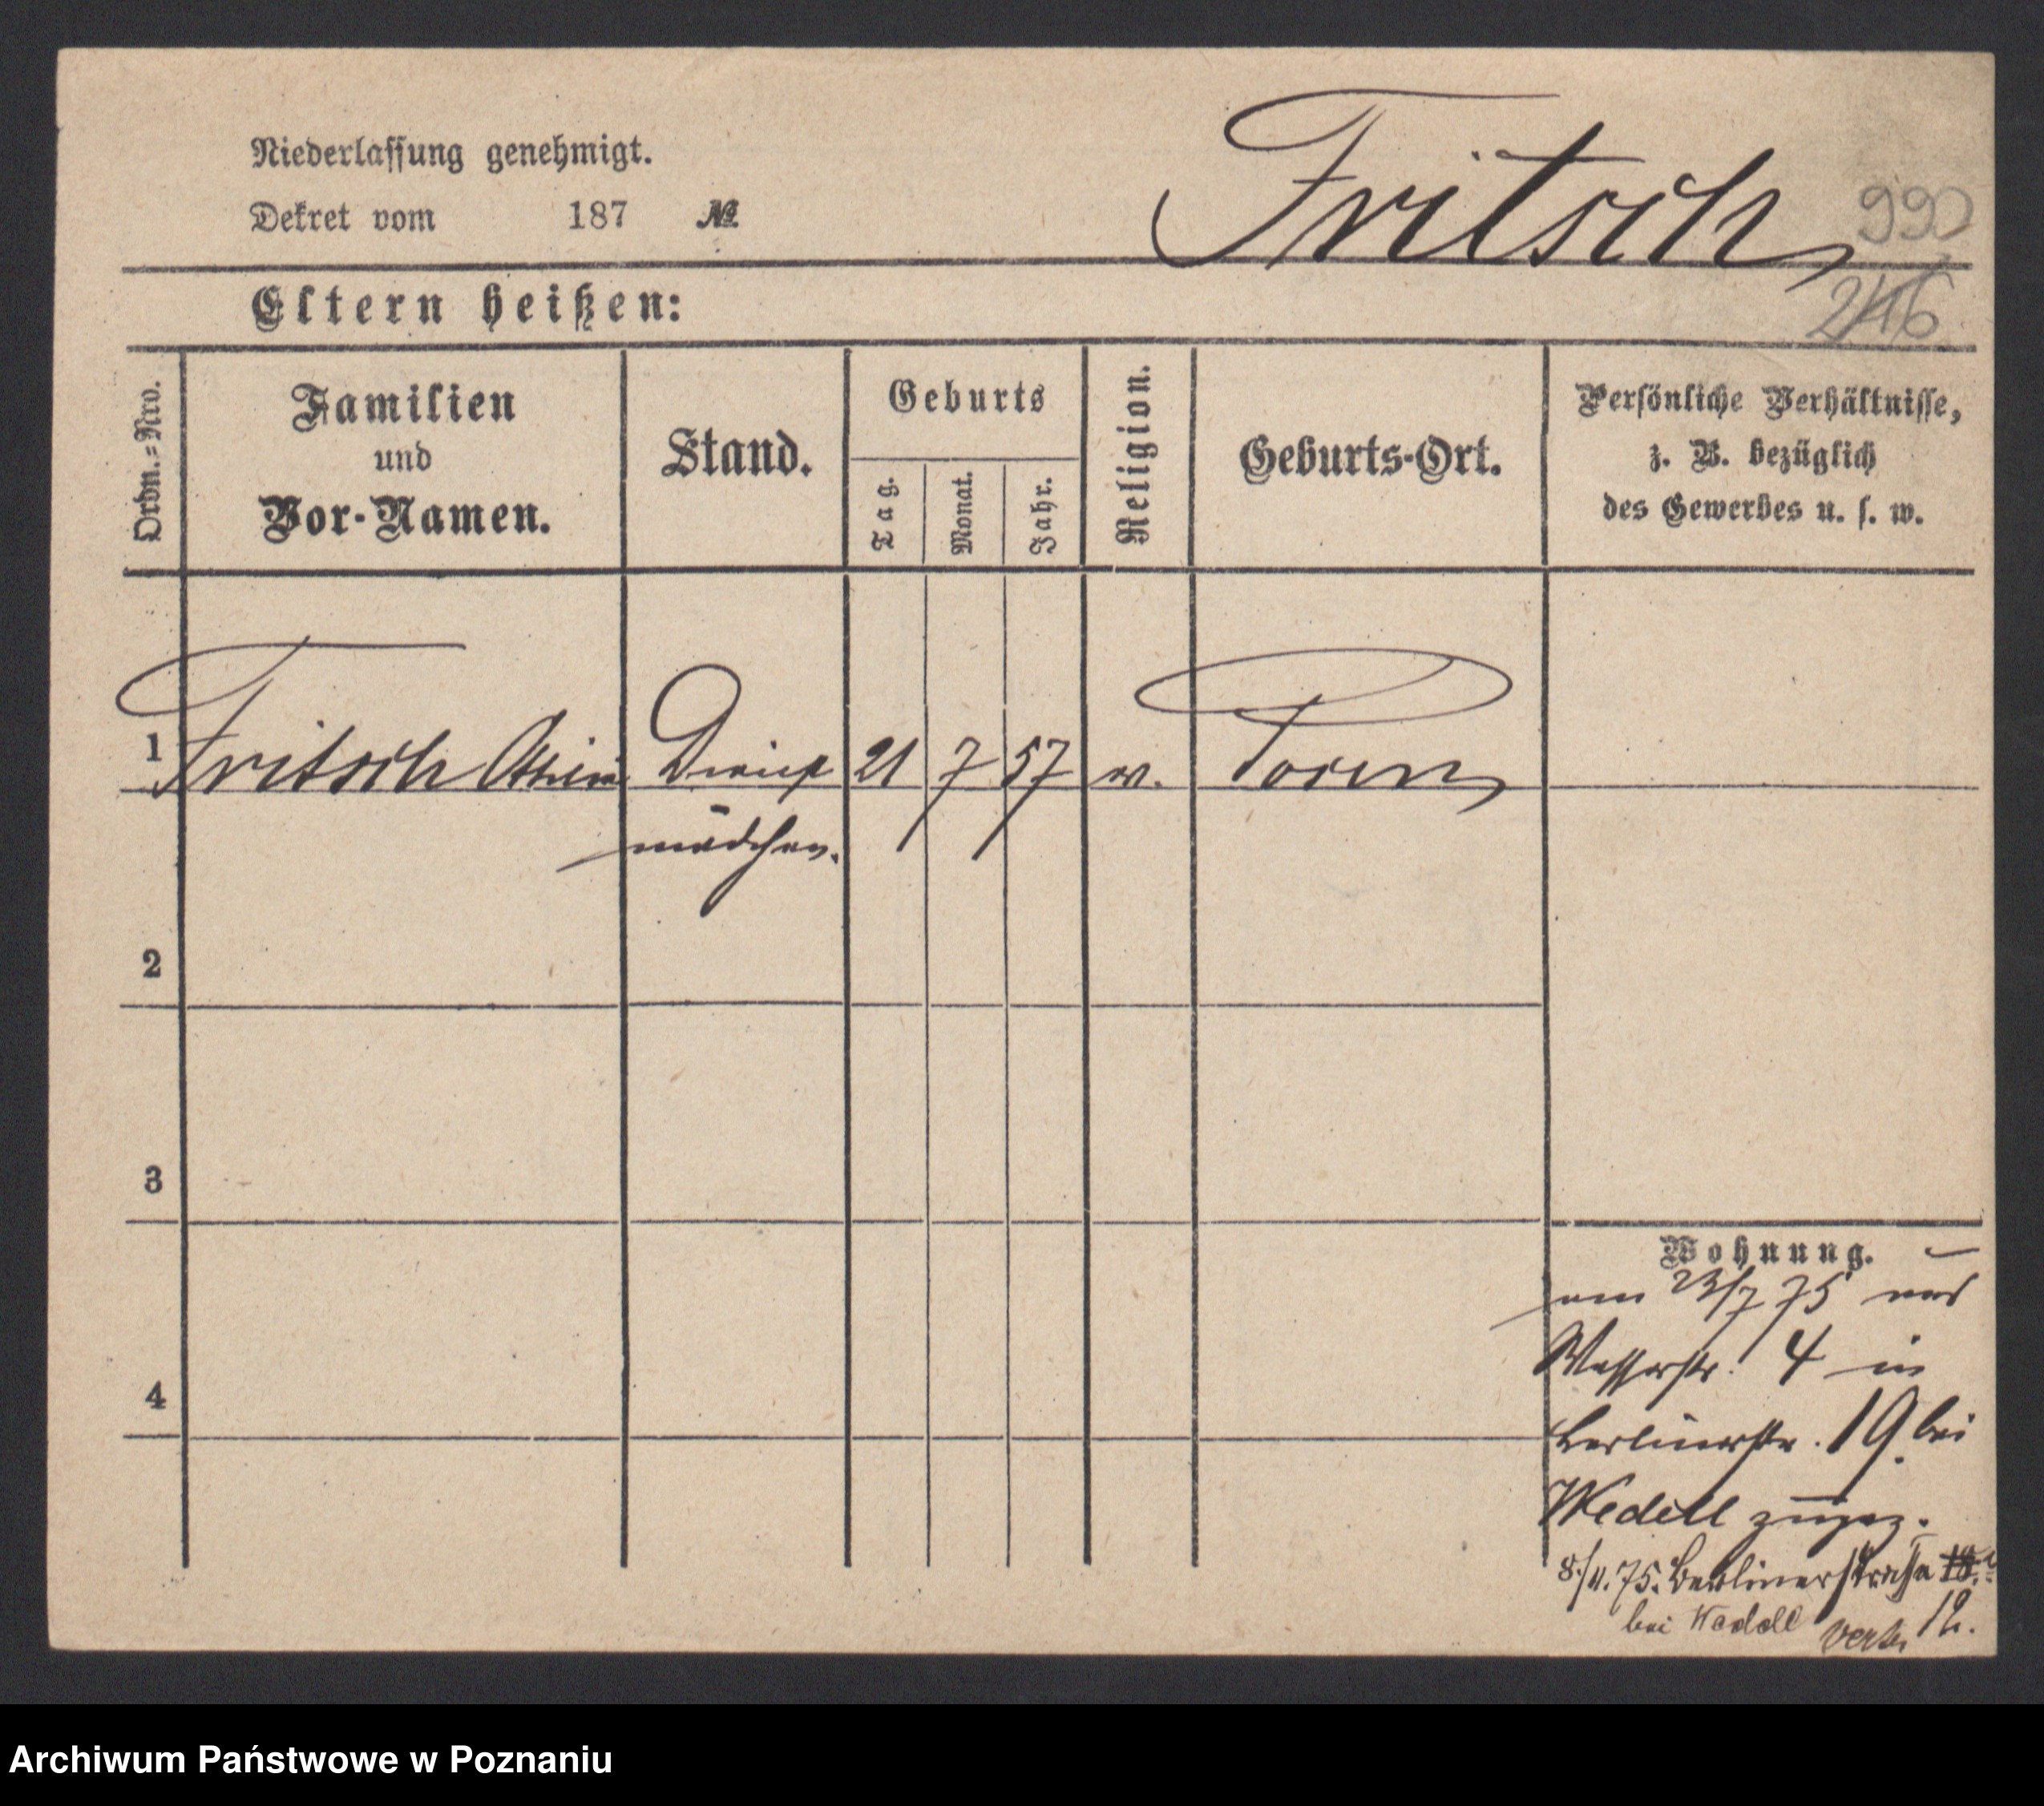 Niederlassung genehmigt.
Dekret vom 187 №
Fritsch
990
246
Eltern heißen:
Ordn.-Nro.
Familien
und
Vor-Namen.
Stand.
Geburts
Tag.
Monat.
Jahr.
Religion.
Geburts-Ort.
Persönliche Verhältnisse,
z. B. bezüglich
des Gewerbes u. s. w.
1 Fritsch 21 7 57 Posen
mädchen.
2
3
4
Wohnung.
am 23/7 75 von
Wasserstr. 4 in
Berlinerstr. 19. bei
Wedell zugez.
8/11. 75. Berlinerstraße
bei Wedell verb. 12.
Archiwum Państwowe w Poznaniu